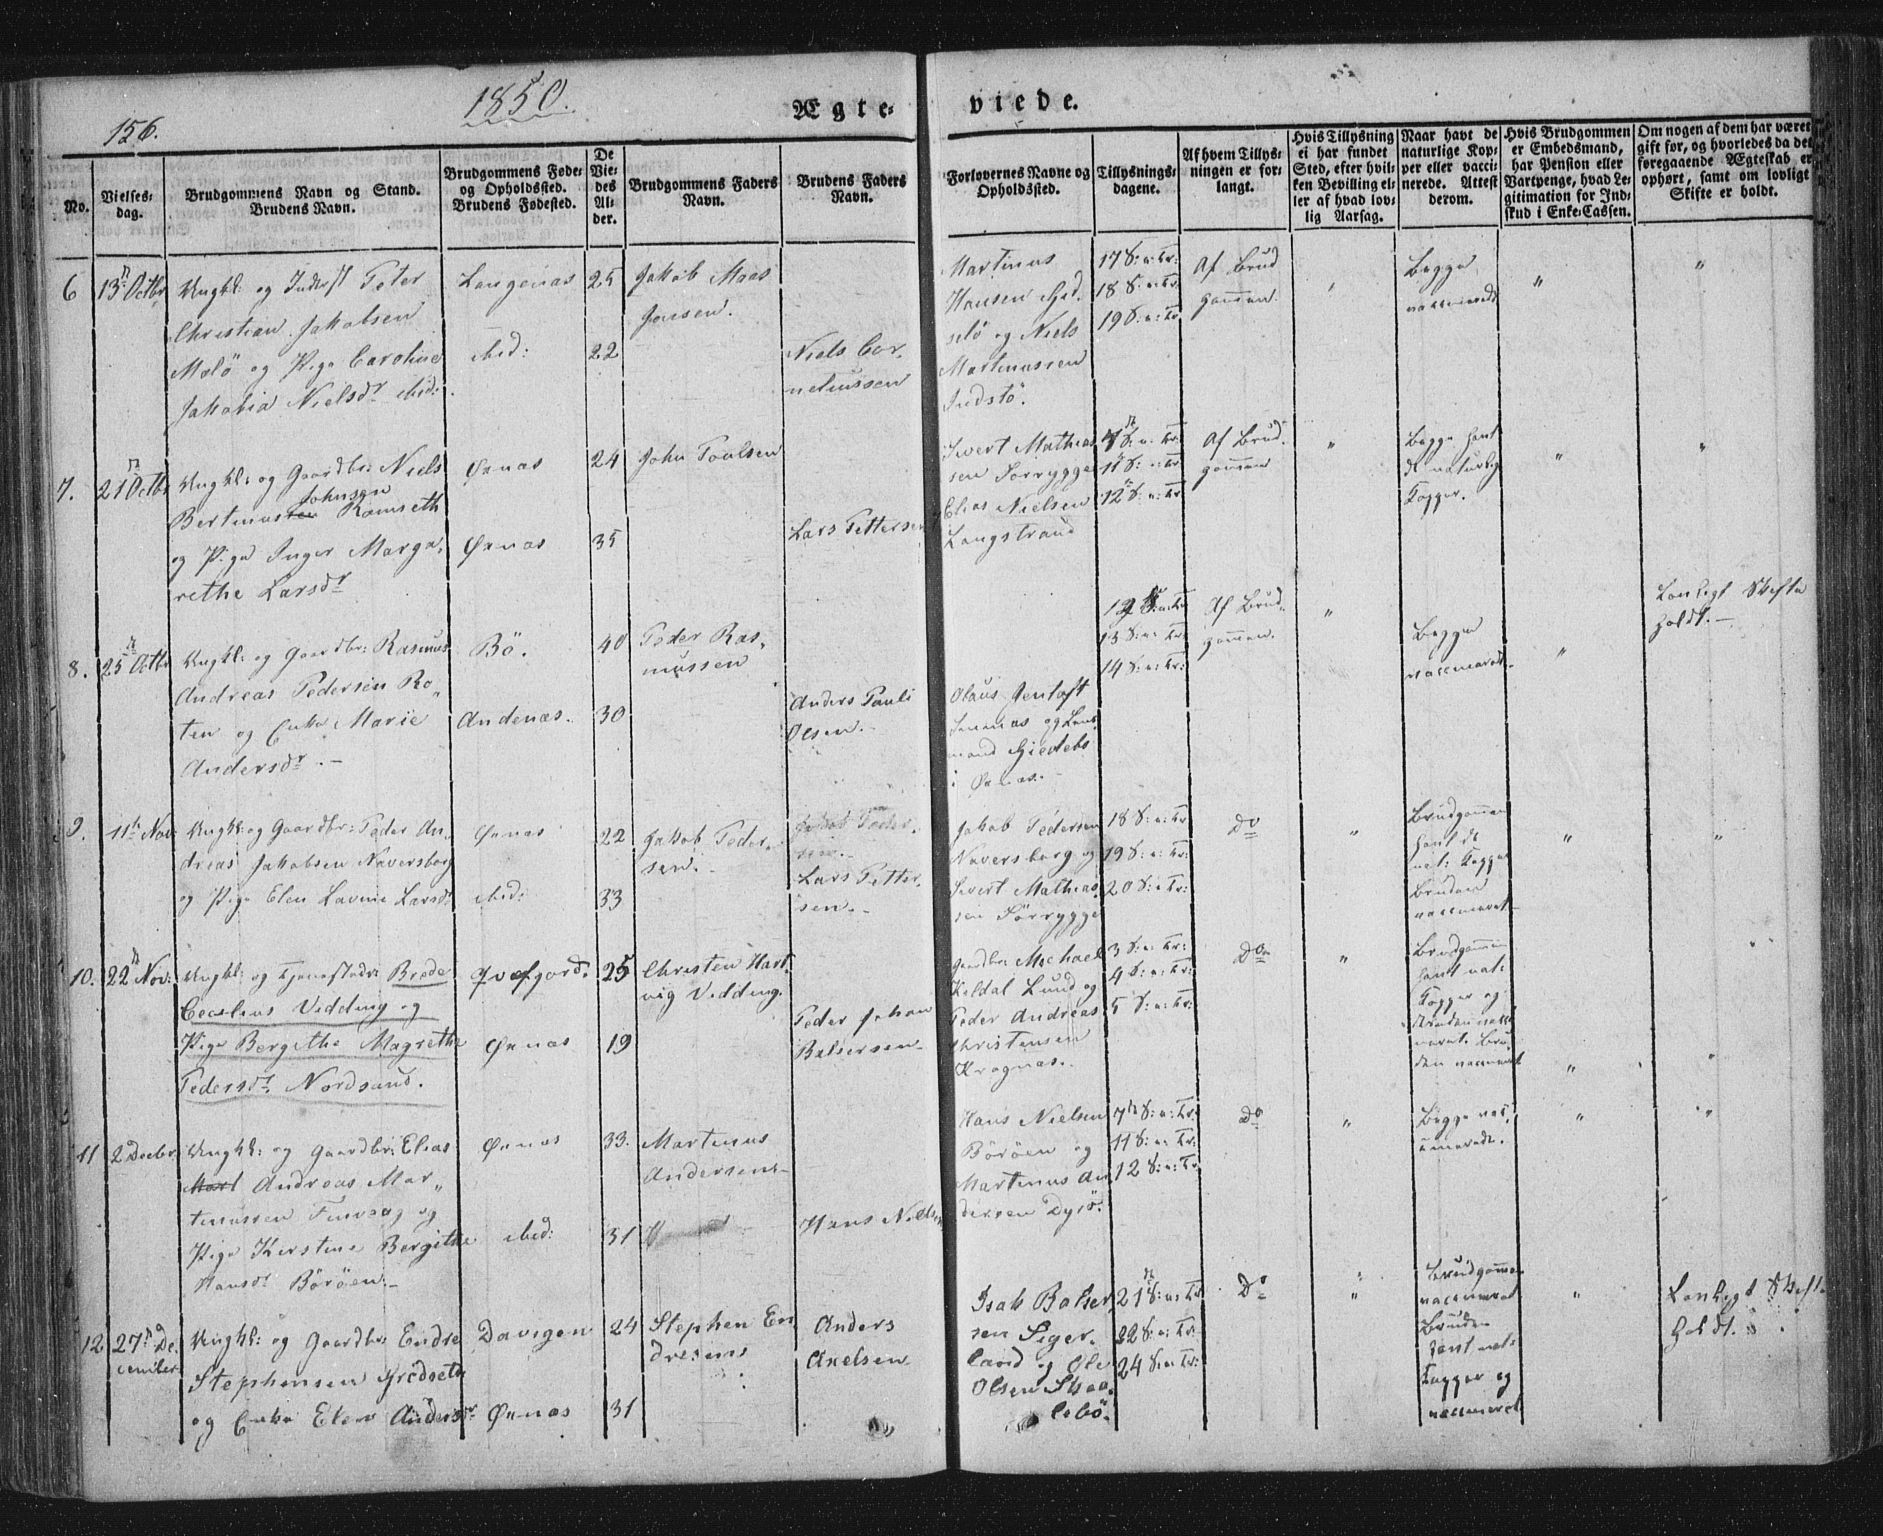 156.
1850.
Ægte-
viede.
No.
Vielses-
dag.
Brudgommens Navn og Stand.
Brudens Navn.
Brudgommens Føde-
og Opholdssted.
Brudens Fødested.
De
Vie-
des
Al-
der.
Brudgommens Faders
Navn.
Brudens Faders
Navn.
Forlovernes Navne og
Opholdssted.
Tillysnings-
dagene.
Af hvem Tillys-
ningen er for-
langt.
Hvis Tillysning
ei har fundet
Sted, efter hvil-
ken Bevilling el-
ler af hvad lov-
lig Aarsag.
Naar havt de
naturlige Kop-
per eller vacci-
nerede. Attest
derom.
Hvis Brudgommen
er Embedsmand,
har Pension eller
Vartpenge, hvad Le-
gitimation for Ind-
skud i Enke-Cassen.
Om nogen af dem har været
gift før, og hvorledes da det
foregaaende Ægteskab er
ophørt, samt om lovligt
Skifte er holdt.
6
13 Octbr
Ungkl: og Inderst Peter
Christian Jakobsen
Melö og Pige Caroline
Jakobia Nielsdr ibid:
Langenas
ibid:
25
22
Jakob Maas
Jonsen.
Niels Cor-
neliussen
Martinus
Hansen
selö og Niels
Martinussen
Indstö.
17 S: e: Tr:
18 S: e: Tr:
19 S: e: Tr:
Af Brud
gommen.
Begge
vaccinerede
7.
21 Octbr
Ungkl: og Gaardbr: Niels
Johnsen
Bertinus Ramseth
og Pige Inger Marga-
rethe Larsdr
Øxnas
Øxnas
24
35
John Poulsen
Lars Pettersen
Sivert Mathias
sen Sörrygge
Elias Nielsen
Langstrand
11 S: e: Tr:
12 S: e: Tr:
Af Brud-
gommen
Begge havt
de naturlig
Kopper.
8.
25 Octbr
Ungkl: og Gaardbr: Rasmus
Andreas Pedersen Ro-
ten og Enke Marie
Andersdr. -
Bö.
Andenas.
40
30
Peder Ras-
mussen
Anders Pauli
Olsen. -
Olaus Jentoft
og Lens
mand
i
13 S: e: Tr:
14 S: e: Tr:
Af Brud-
gommen.
Begge
vaccinerede.
Lovligt Skifte
holdt. -
9.
11 Nov:
Ungkl: og Gaardbr: Peder An-
dreas Jakobsen Naversborg
og Pige Elen Lavine Larsdr
Øxnas
ibid:
22
33
Jakob Peder-
sen. -
Lars Petter-
sen. -
Jakob Pedersen
Naversborg og
Sivert Mathias-
sen Sörrygge
18 S: e: Tr
19 S: e: Tr:
20 S: e: Tr:
Do
Brudgommen
havt de
nat: Kopper
Bruden
vaccineret
10.
22 Nov:
Ungkl: og Brede
Cecelius Vedding og
Pige Bergithe Magrethe
Pedersdr Nordsand.
Qvæfjord.
Øxnas
25
19
Christen Hart-
vig Vedding.
Peder Johan
Balsersen
Gaardbr: Michael
Keldal Lund og
Peder Andreas
Christensen
Kragnas.
3 S: e: Tr:
4 S: e: Tr:
5 S: e: Tr:
Do
Brudgommen
havt nat:
Kopper og
Bruden vacci
neret. Bru
den vaccineret
11
2 Decbr
Ungkl: og Gaardbr: Elias
Mart Andreas Mar-
tinussen Finvaag og
Pige Kirstine Bergithe
Hansdr Böröen. -
Øxnas
ibid:
33.
31
Martinus
Andersens
Hans Nielsen
Hans Nielsen
Böröen og
Martinus An
dersen Dyrö.
11 S: e: Tr:
12 S: e: Tr:
Do
Begge vac-
cinerede.
12
27 De
cember
Ungkl: og Gaardbr: Endre
Stephensen
og Enke Elen Andersdr
Davigen
Øxnas
24
31
Stephen En
dresens
Anders
Axelsen
Isak Balser
sen Siger-
land og Ole
Olsen Skaa-
lebö.
21 S: e: Tr
22 S: e: Tr:
24 S: e: Tr:
Do
Brudgommen
vaccineret
Bruden
havt nat:
Kopper og
vaccineret
Lovligt Skifte
holdt.